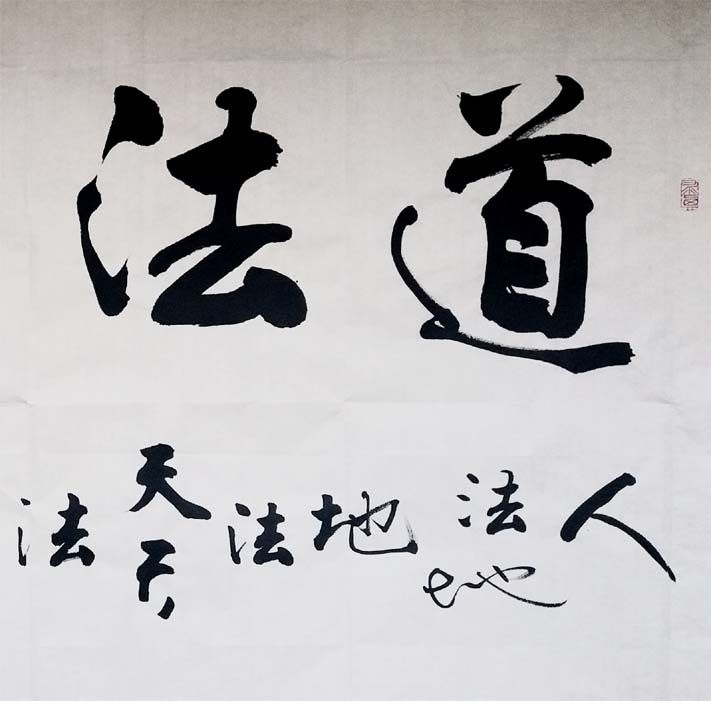 道法
人法地地法天天法